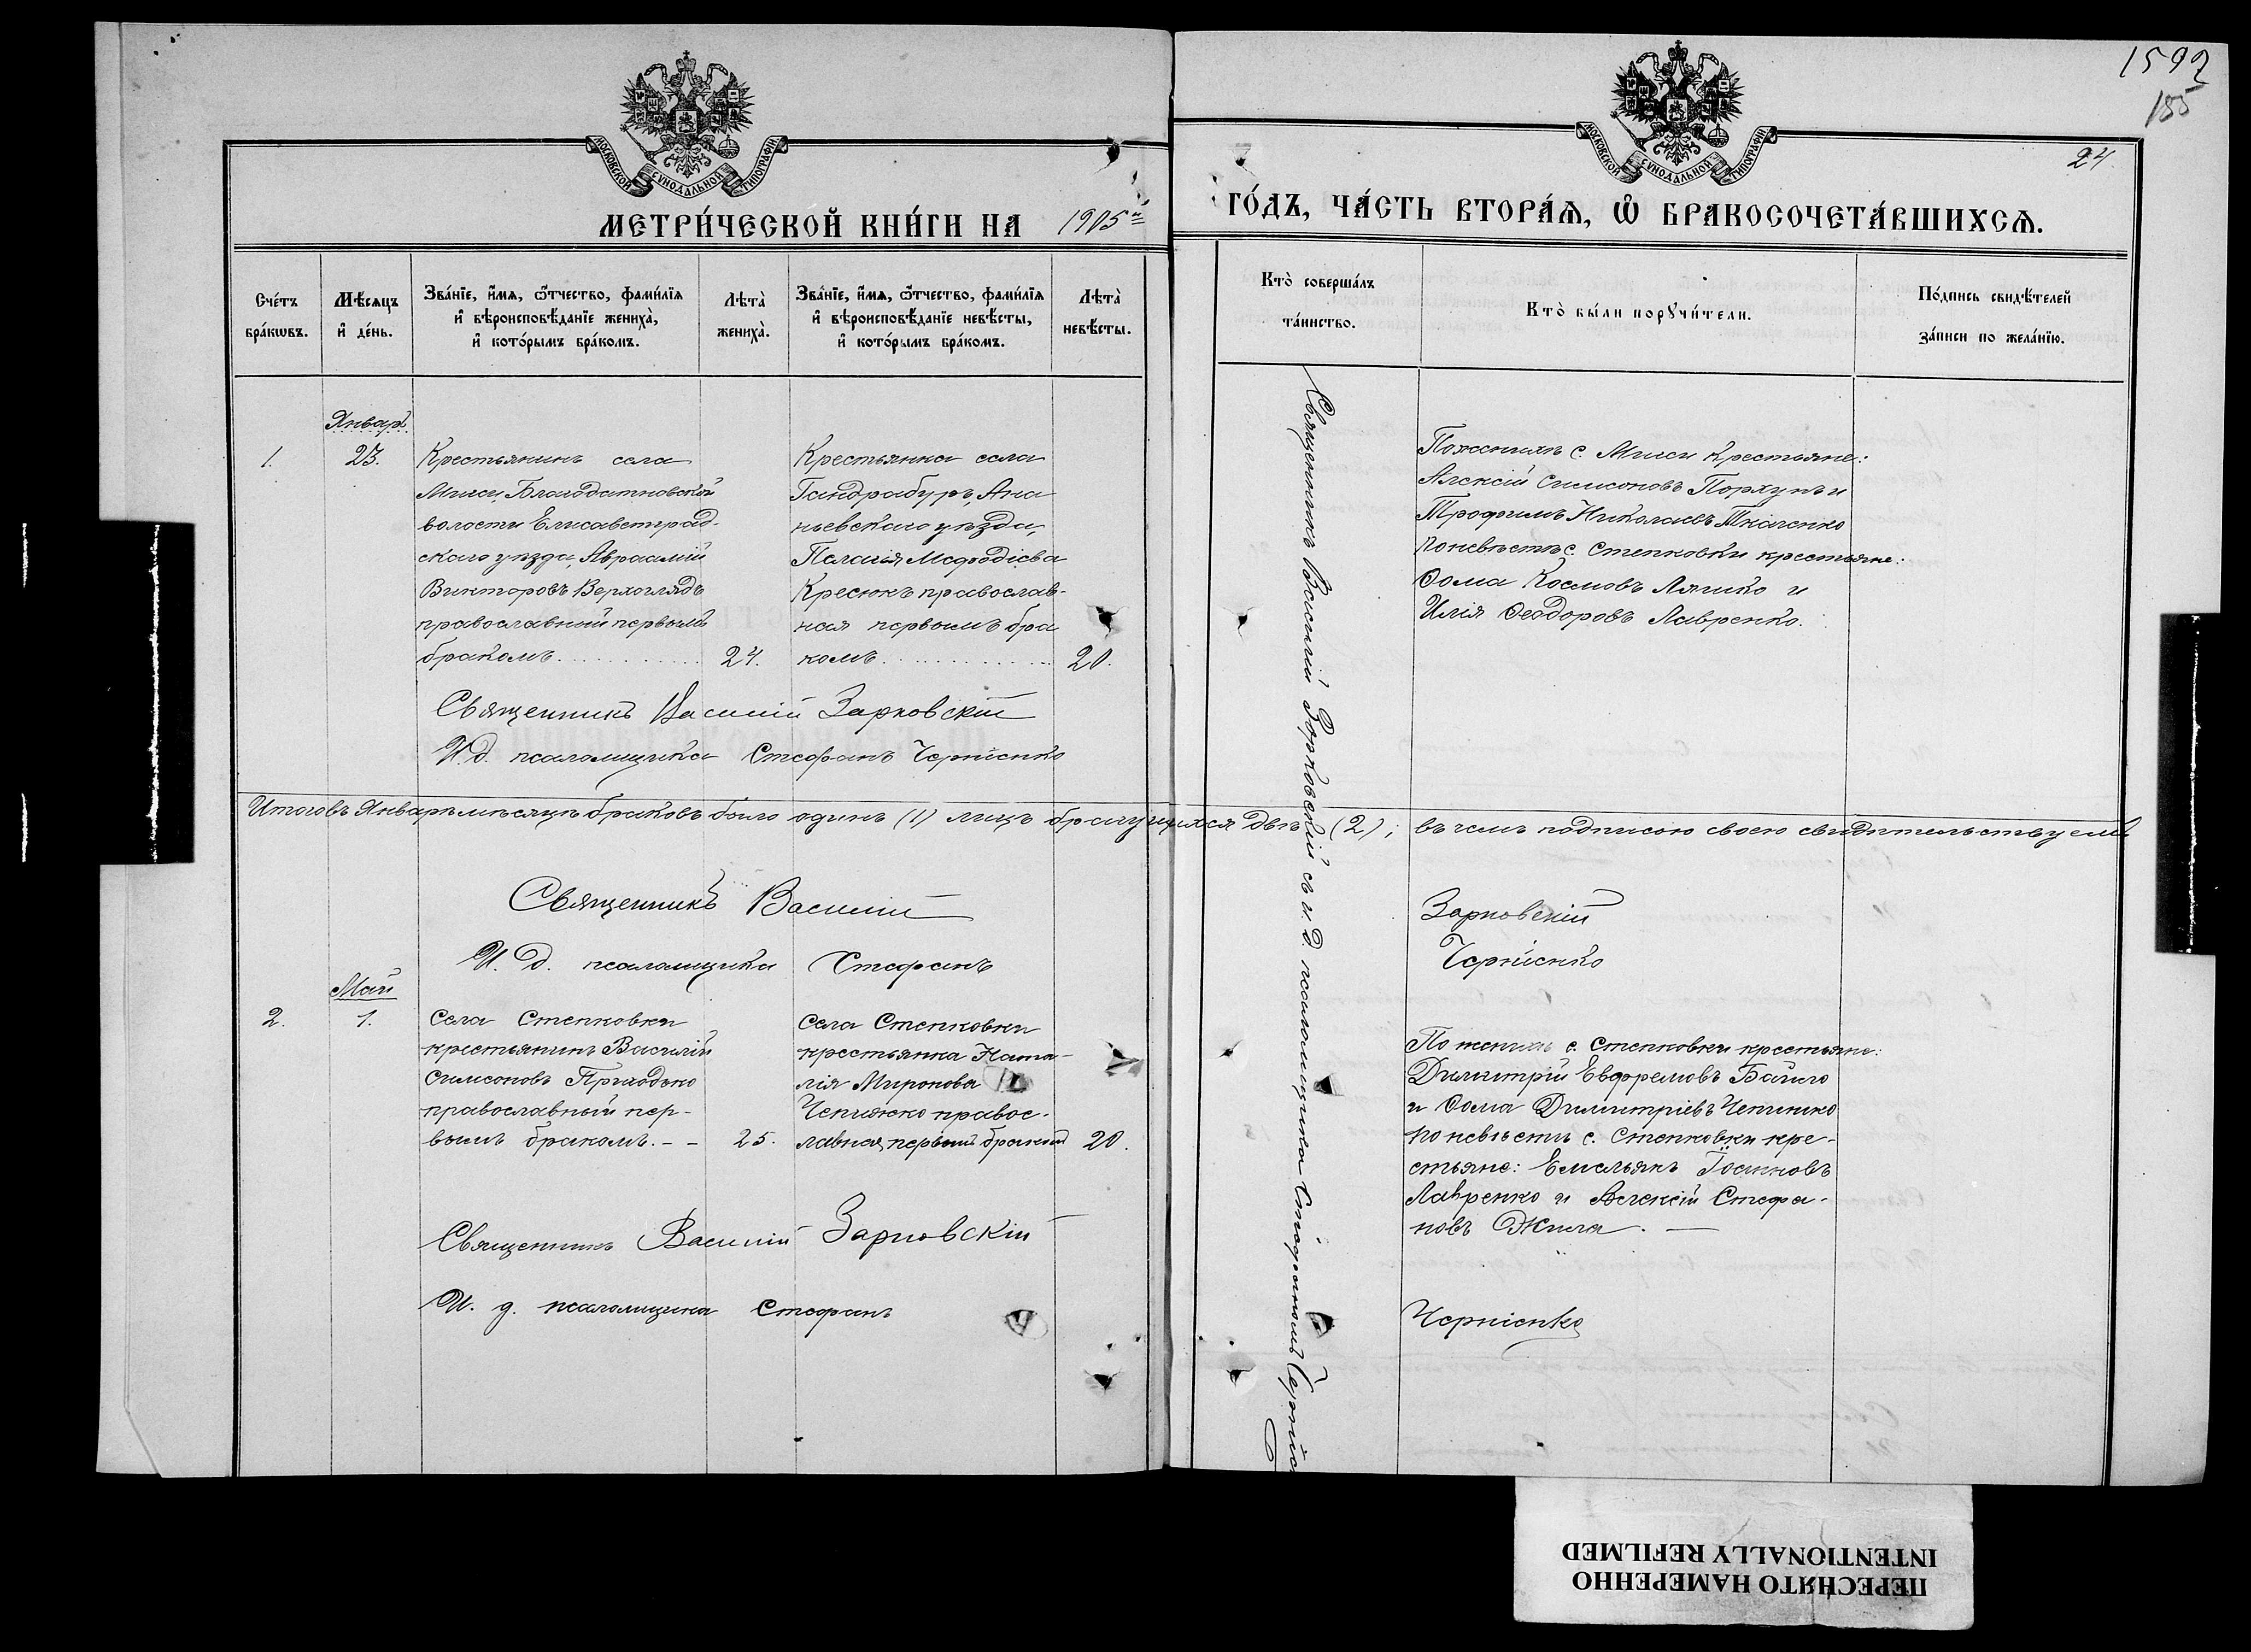 1592
155
24
МОСКОВСКОЙ СѴНОДАЛЬНОЙ ТИПОГРАФІИ
МОСКОВСКОЙ СѴНОДАЛЬНОЙ ТИПОГРАФІИ
МЕТРИ́ЧЕСКОЙ КНИ́ГИ НА 1905й
ГО́ДЪ, ЧА́СТЬ ВТОРА́Ѧ, Ѡ҆ БРАКОСОЧЕТА́ВШИХСѦ.
Сче́тъ бра́кѡвъ.
Мѣ́сяцъ и҆ де́нь.
Зва́нїе, и҆́мѧ, ѻ҆́тчество, фами́лїѧ и҆ вѣроисповѣ́данїе жениха̀, и҆ кото́рымъ бра́комъ.
Лѣта̀ жениха̀.
Зва́нїе, и҆́мѧ, ѻ҆́тчество, фами́лїѧ и҆ вѣроисповѣ́данїе невѣ́сты, и҆ кото́рымъ бра́комъ.
Лѣта̀ невѣ́сты.
Кто̀ соверша́лъ та́инство.
Кто̀ бы́ли порꙋчи́тели.
По́дпись свидѣ́телей за́писи по жела́нїю.
Январь
1.
23.
Крестьянинъ села
Мигеи, Благодатновской
волости Елисаветград-
скаго уѣзда, Авраамій
Викторовъ Верхоглядъ
православный первымъ
бракомъ
24.
Крестьянка села
Гандрабуръ, Ана
ньевскаго уѣзда,
Пелагія Меѳодіева
Кресюкъ православ-
ная первымъ бра
комъ
20.
По женихѣ с. Мигеи крестьяне:
Алексій Симеоновъ Порхунъ и
Трофимъ Николаевъ Ткаченко
по невѣстѣ с. Степковки крестьяне:
Ѳома Космовъ Ляшко и
Илія Ѳеодоровъ Лавренко.
Священникъ Василій Зарковскій
И.д. псаломщика Стефанъ Чернienко
Священникъ Василій Зарковскій съ и.д. псаломщика Стефаномъ
Итого въ Январѣ мѣсяцѣ браковъ было одинъ (1) лицъ брачущихся двѣ (2); въ чемъ подписою своею свидѣтельствуемъ
Священникъ Василій Зарковскій
И.д. псаломщика Стефанъ Чернienко
Май
2.
1.
Села Степковки
крестьянинъ Василій
Симеоновъ Приходько
православный пер-
вымъ бракомъ. - -
25.
Села Степковки
крестьянка Ната-
лія Миронова
Чепижко правос-
лавная, первымъ бракомъ
20.
По женихѣ с. Степковки крестьяне:
Димитрій Евфремовъ
и Ѳома Димитріевъ Чепижко
по невѣстѣ с. Степковки кре-
стьяне: Емельянъ Іоанновъ
Лавренко и Алексій Стефа-
новъ
Священникъ Василій Зарковскій
И. д. псаломщика Стефанъ Чернienко
ПЕРЕСНЯТО НАМЕРЕННО
INTENTIONALLY REFILMED